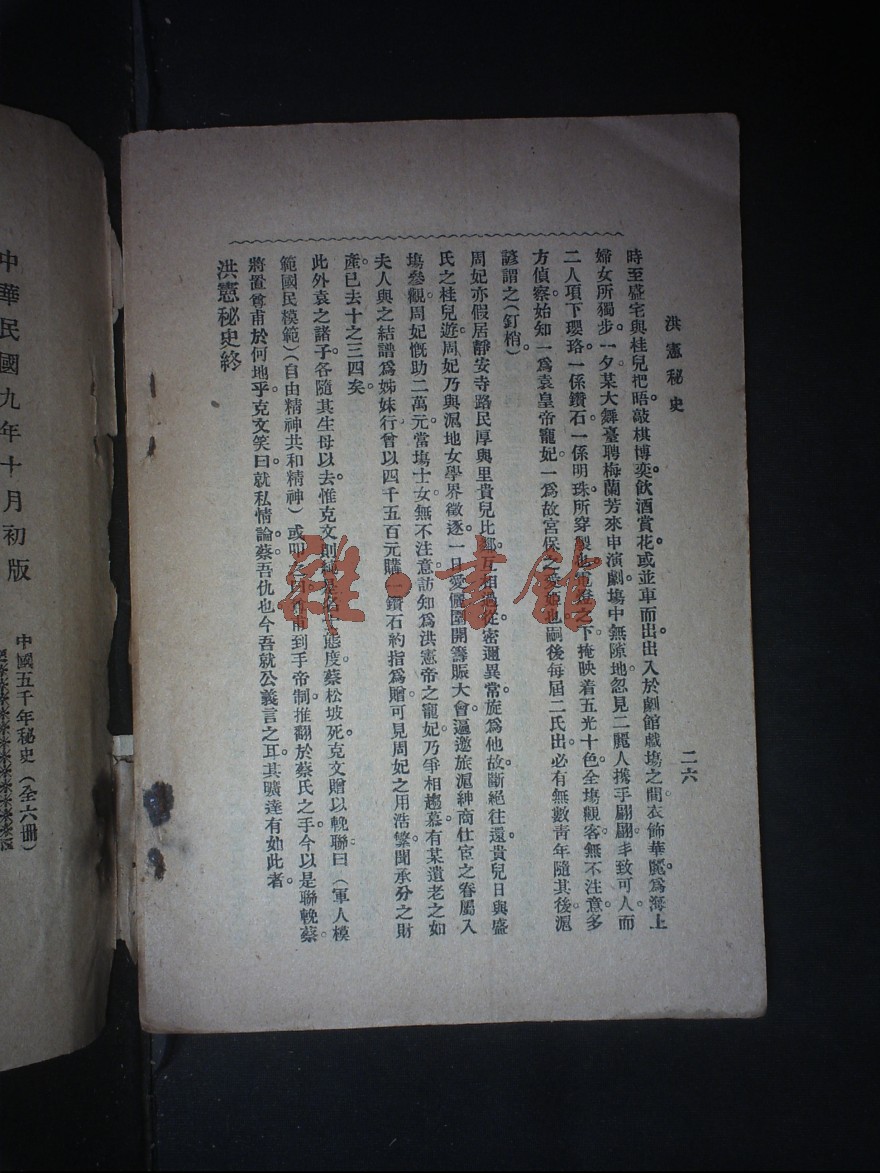 洪憲秘史
二六
時至盛宅與桂兒把晤敲棋博奕飲酒賞花或並車而出出入於劇館戲塲之間衣飾華麗爲海上
婦女所獨步。一夕某大舞臺聘梅蘭芳來申演劇塲中無隙地忽見二麗人携手翩翩丰致可人而
二人項下瓔珞一係鑽石一係明珠所穿製也電燈之下掩映着五光十色全塲觀客無不注意多
方偵察始知一爲袁皇帝寵妃一爲故宮保之愛姬也嗣後每屆二氏出必有無數青年隨其後滬
諺謂之(釘梢)
周妃亦假居靜安寺路民厚與里貴兒比鄰互相過從密邇異常旋爲他故斷絕往還貴兒日與盛
氏之桂兒遊周妃乃與滬地女學界徵逐一日愛儷園開籌賑大會遍邀旅滬紳商仕宦之眷屬入
塲參觀周妃慨助二萬元當塲士女無不注意訪知爲洪憲帝之寵妃乃爭相趨慕有某遺老之如
夫人與之結譜爲姊妹行曾以四千五百元購一鑽石約指爲贈可見周妃之用浩繁聞承分之財
產已去十之三四矣。
此外袁之諸子各隨其生母以去惟克文則純是名士態度蔡松坡死克文贈以輓聯曰(軍人模
範國民模範)(自由精神共和精神)或叩之曰 甫到手帝制推翻於蔡氏之手今以是聯輓蔡
將置尊甫於何地乎克文笑曰就私情論蔡吾仇也今吾就公義言之耳其曠達有如此者。
洪憲秘史終
中華民國九年十月初版
中國五千年秘史(全六冊)
雜·書館